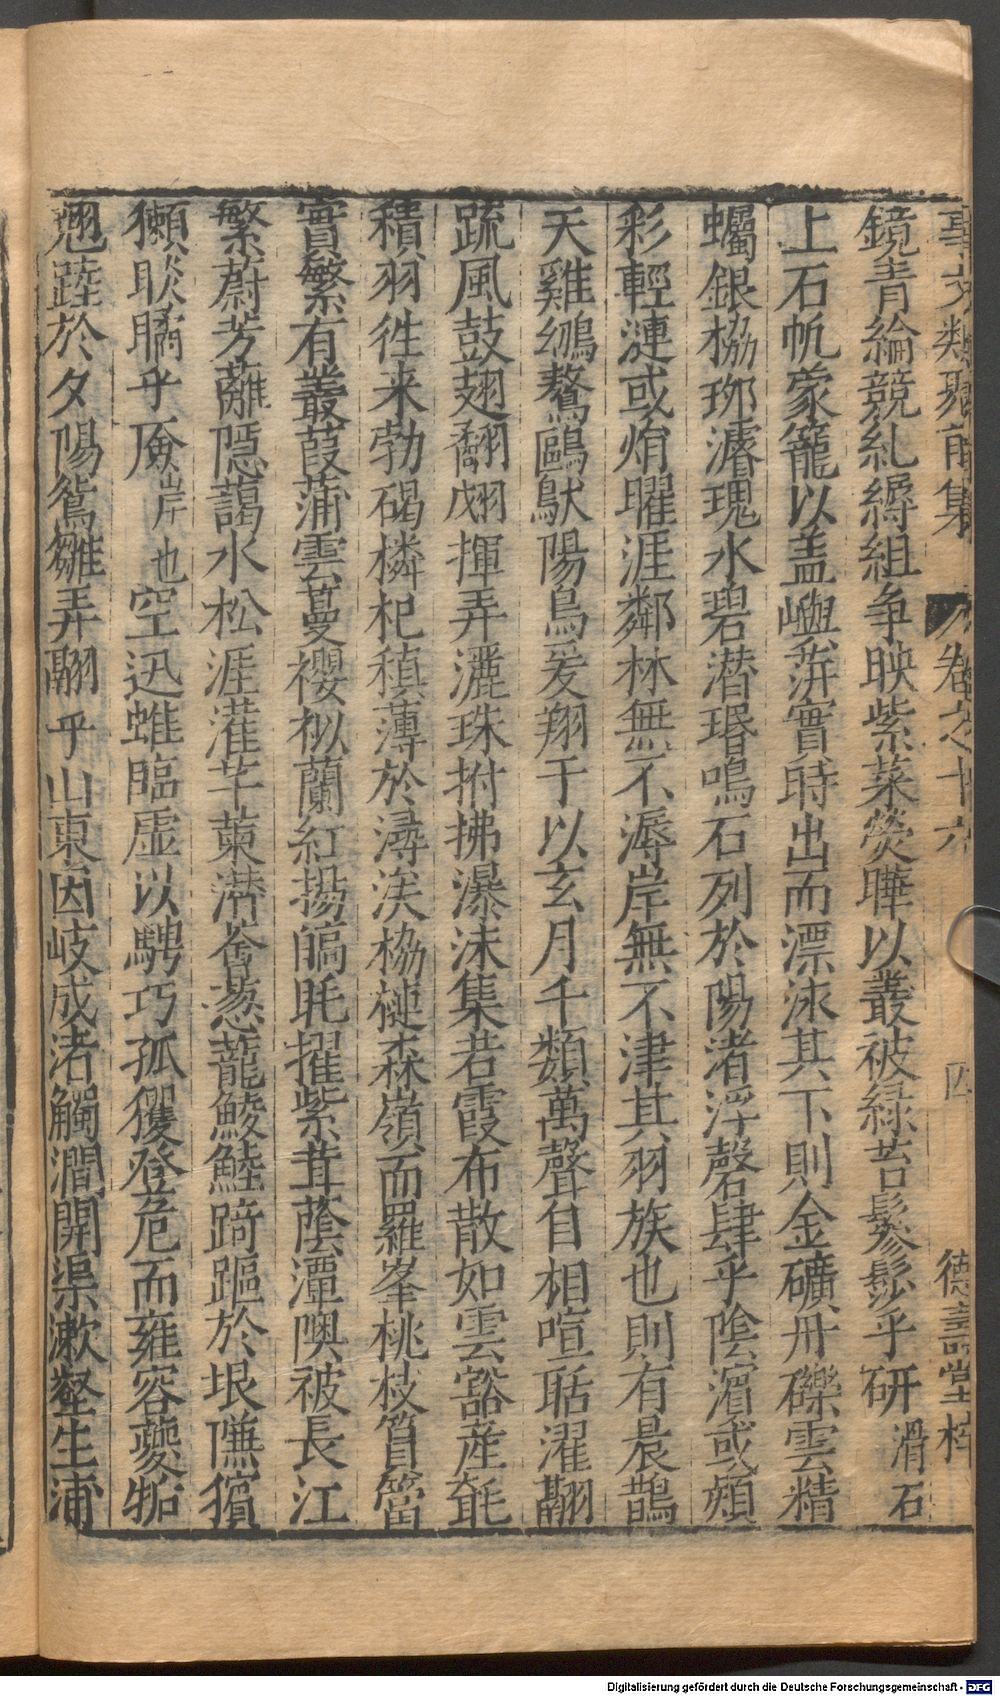 事文類聚前集 卷之十六 四 德壽堂梓
鏡青綸競糺縟組争映紫菜熒曄以叢被緑苔鬖髿乎研滑石
上石帆蒙籠以盖嶼蓱實時出而漂泳其下則金礦丹礫雲精
蠾銀栛珋瀋瑰水碧潜琘鳴石列於陽渚浮磬肆乎陰濵或熲
彩輕漣或焆曜涯鄰林無不溽岸無不津其羽族也則有晨鵠
天雞鴢鶩鷗䲦陽鳥爰翔于以玄月千類萬聲自相喧聒濯翮
疏風鼓翅翻翽揮弄灑珠拊拂瀑沫集若霞布散如雲豁産毻
積羽徃来勃碣橉杞稹薄於潯涘栛槤森嶺而羅峯桃枝篔簹
實繁有叢葭蒲雲蔓䙬以蘭紅揚皜毦擢紫茸蔭潭隩被長江
繁蔚芳蘺隠藹水松涯灌芊萰潜薈葱蘢鯪鯥踦䟣於垠隒獱
獺睒瞲乎厱岸也空迅蜼臨虚以騁巧孤玃登危而雍容夔㹯
翹踛於夕陽鴛雛弄翮乎山東因岐成渚觸澗開渠漱壑生浦
Digitalisierung gefördert durch die Deutsche Forschungsgemeinschaft - DFG